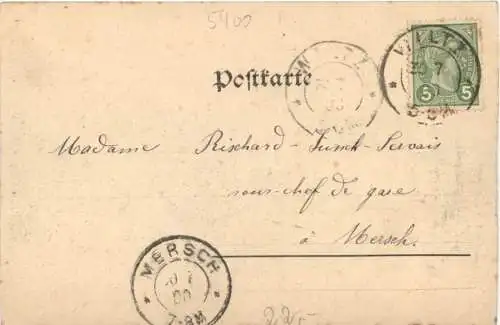 5400
Postkarte
WILTZ
5 5
5-6M
Madame Rischard-Funck-Servais
sous-chef de gare
à Mersch.
MERSCH
7-8M
22,-